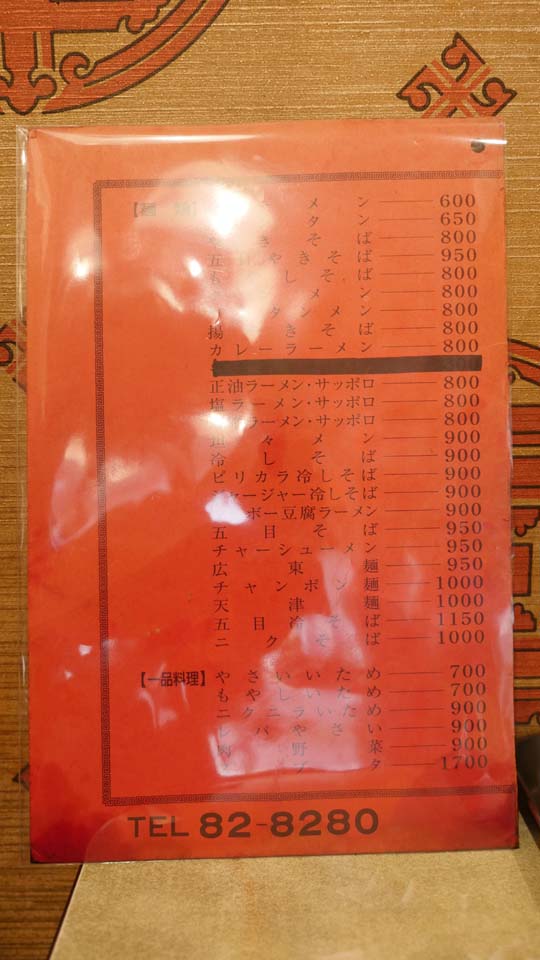 【麺 類】 メン 600
タン 650
やきそば 800
五 やきそば 950
しそば 800
メン 800
タンメン 800
揚きそば 800
カレーラーメン 800
正油ラーメン・サッポロ 800
塩ラーメン・サッポロ 800
ラーメン・サッポロ 800
担々メン 900
冷しそば 900
ピリカラ冷しそば 900
ジャージャー冷しそば 900
ボー豆腐ラーメン 900
五目そば 950
チャーシューメン 950
広東麺 950
チャンポン麺 1000
天津麺 1000
五目冷そば 1150
ニクそば 1000
【一品料理】 やさいいため 700
もやしいため 700
ニクニラいため 900
レバやさい 900
肉野菜 900
ブタ 1700
TEL 82-8280